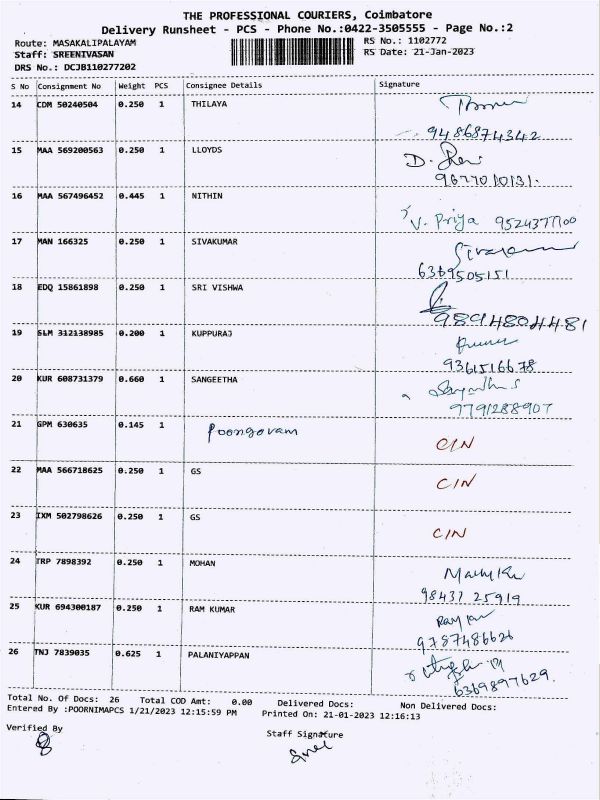 THE PROFESSIONAL COURIERS, Coimbatore
Delivery Runsheet - PCS - Phone No.:0422-3505555 - Page No.:2
Route: MASAKALIPALAYAM RS No.: 1102772
Staff: SREENIVASAN RS Date: 21-Jan-2023
DRS No.: DCJB110277202
S No Consignment No Weight PCS Consignee Details Signature
14 CDM 50240504 0.250 1 THILAYA
9486874342
15 MAA 569200563 0.250 1 LLOYDS
9677010131.
16 MAA 567496452 0.445 1 NITHIN
V. Priya 9524377700
17 MAN 166325 0.250 1 SIVAKUMAR
6369505151
18 EDQ 15861898 0.250 1 SRI VISHWA
9894804481
19 SLM 312138985 0.200 1 KUPPURAJ
9361516678
20 KUR 608731379 0.660 1 SANGEETHA
9791288907
21 GPM 630635 0.145 1 Poongovam
C/N
22 MAA 566718625 0.250 1 GS
C/N
23 IXM 502798626 0.250 1 GS
C/N
24 TRP 7898392 0.250 1 MOHAN
98437 25919
25 KUR 694300187 0.250 1 RAM KUMAR
9787486626
26 TNJ 7839035 0.625 1 PALANIYAPPAN
6369897629.
Total No. Of Docs: 26 Total COD Amt: 0.00 Delivered Docs: Non Delivered Docs:
Entered By :POORNIMAPCS 1/21/2023 12:15:59 PM Printed On: 21-01-2023 12:16:13
Verified By Staff Signature